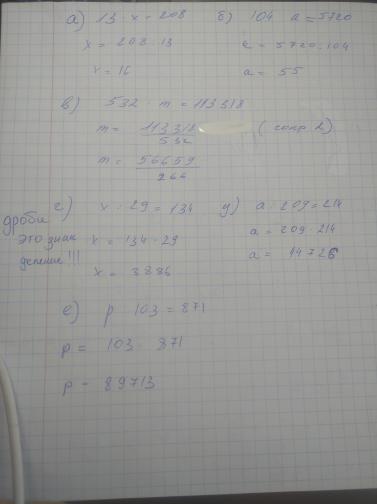 а) 13 x = 208
x = 208 : 13
x = 16
б) 104 a = 5720
a = 5720 : 104
a = 55
в) 532 · m = 113318
m = 113318 / 532 (сокр 2)
m = 56659 / 266
дроби
это знак
деление!!!
г) x : 29 = 134
x = 134 · 29
x = 3886
д) a : 209 = 214
a = 209 · 214
a = 44726
е) p 103 = 871
p = 103 · 871
p = 89713